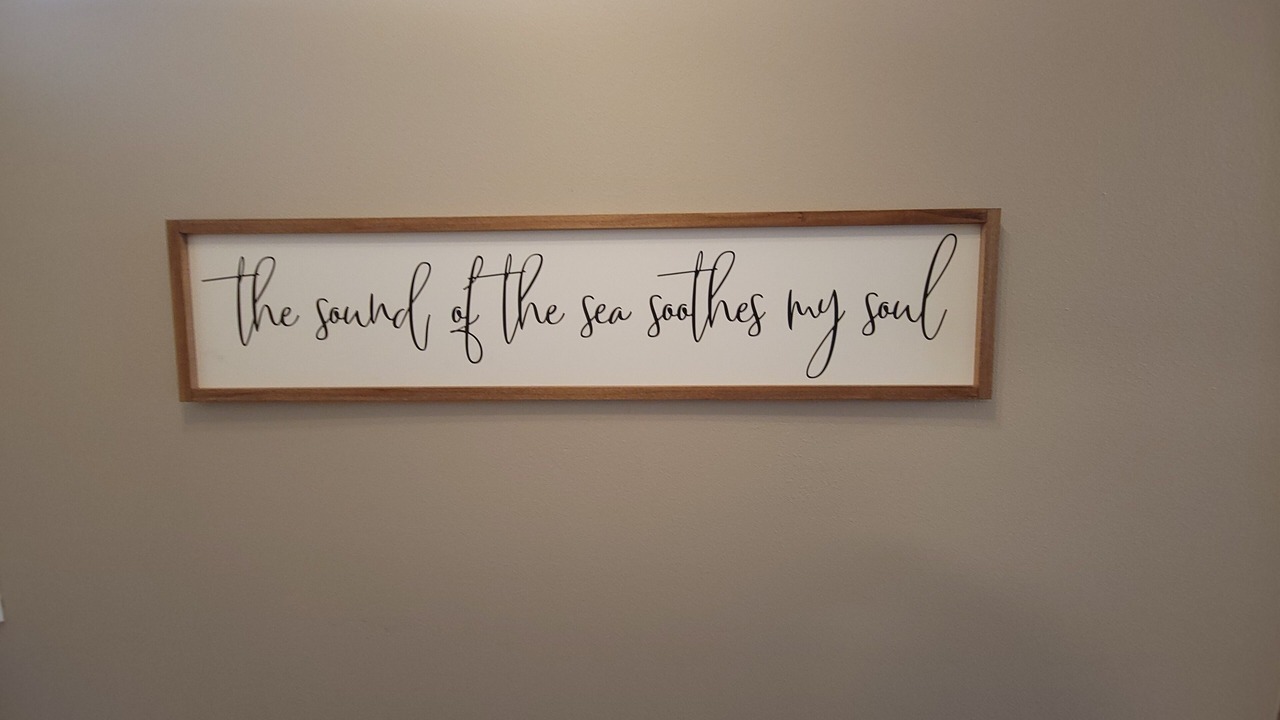 the sound of the sea soothes my soul